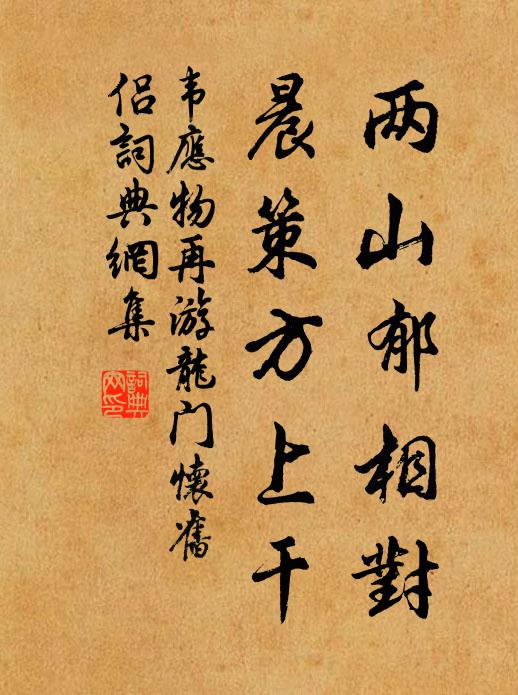 两山郁相對
晨策方上干
韦應物再游龍门懷舊
侣詞典網集
詞典网印